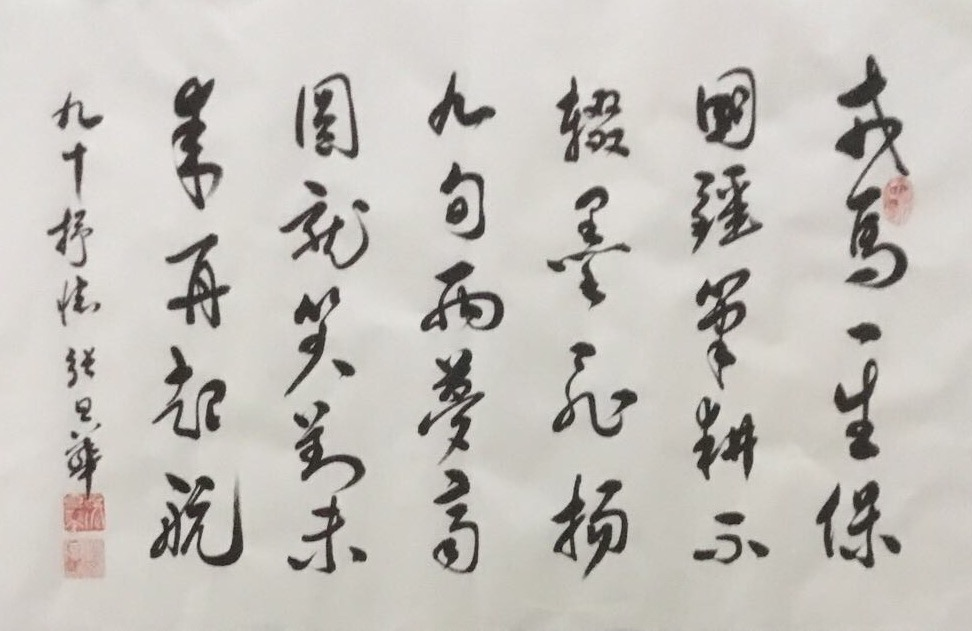 戎馬一生保
國疆筆耕不
輟墨飛揚
九旬兩夢高
圓就笑對未
來再起航
九十抒懷 張旦華